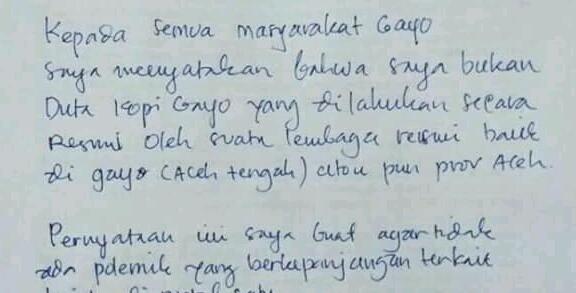 Kepada semua masyarakat Gayo
Saya menyatakan bahwa saya bukan
Duta kopi Gayo yang dilakukan secara
Resmi oleh suatu lembaga resmi baik
di gayo (Aceh tengah) atau pun prov Aceh.
Pernyataan ini saya buat agar tidak
ada polemik yang berkepanjangan terkait